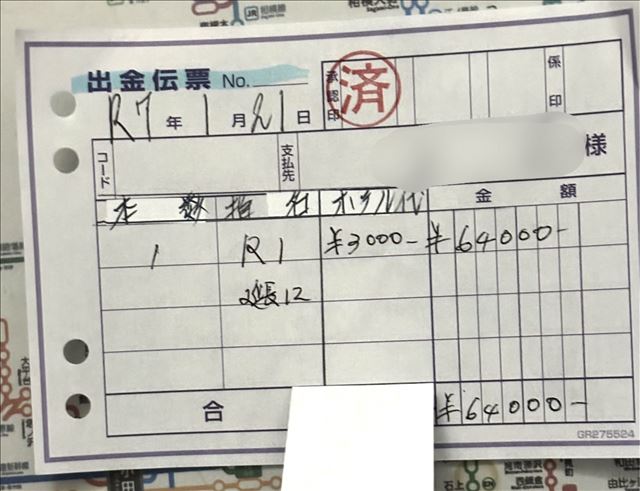 出金伝票 No.
承認印
済
係印
R7年1月21日
コード
支払先
様
本数 指名 ホテル代 金額
1 R1 ¥3000- ¥64000-
延長12
合
¥64000-
GR275524